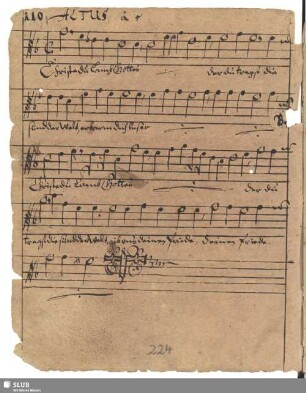 110 ALTUS à 4
Christe du Lamb Gottes der du tragst die
sünd der Welt, erbarm dich unser
Christe du Lamb Gottes der du
tragst die sünd der Welt, gib uns deinen Friede. deinen Friede.
224
SLUB